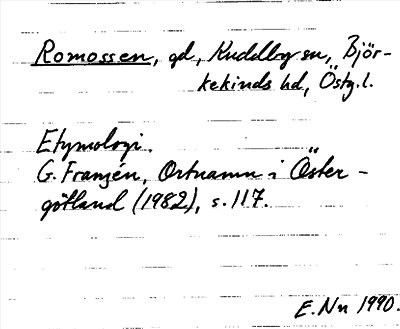 Romossen, gd, Kuddby sn, Björ-
kekinds hd, Östg.l.
Etymologi.
G. Franzén, Ortnamn i Öster-
götland (1982), s. 117.
E. Nn 1990.